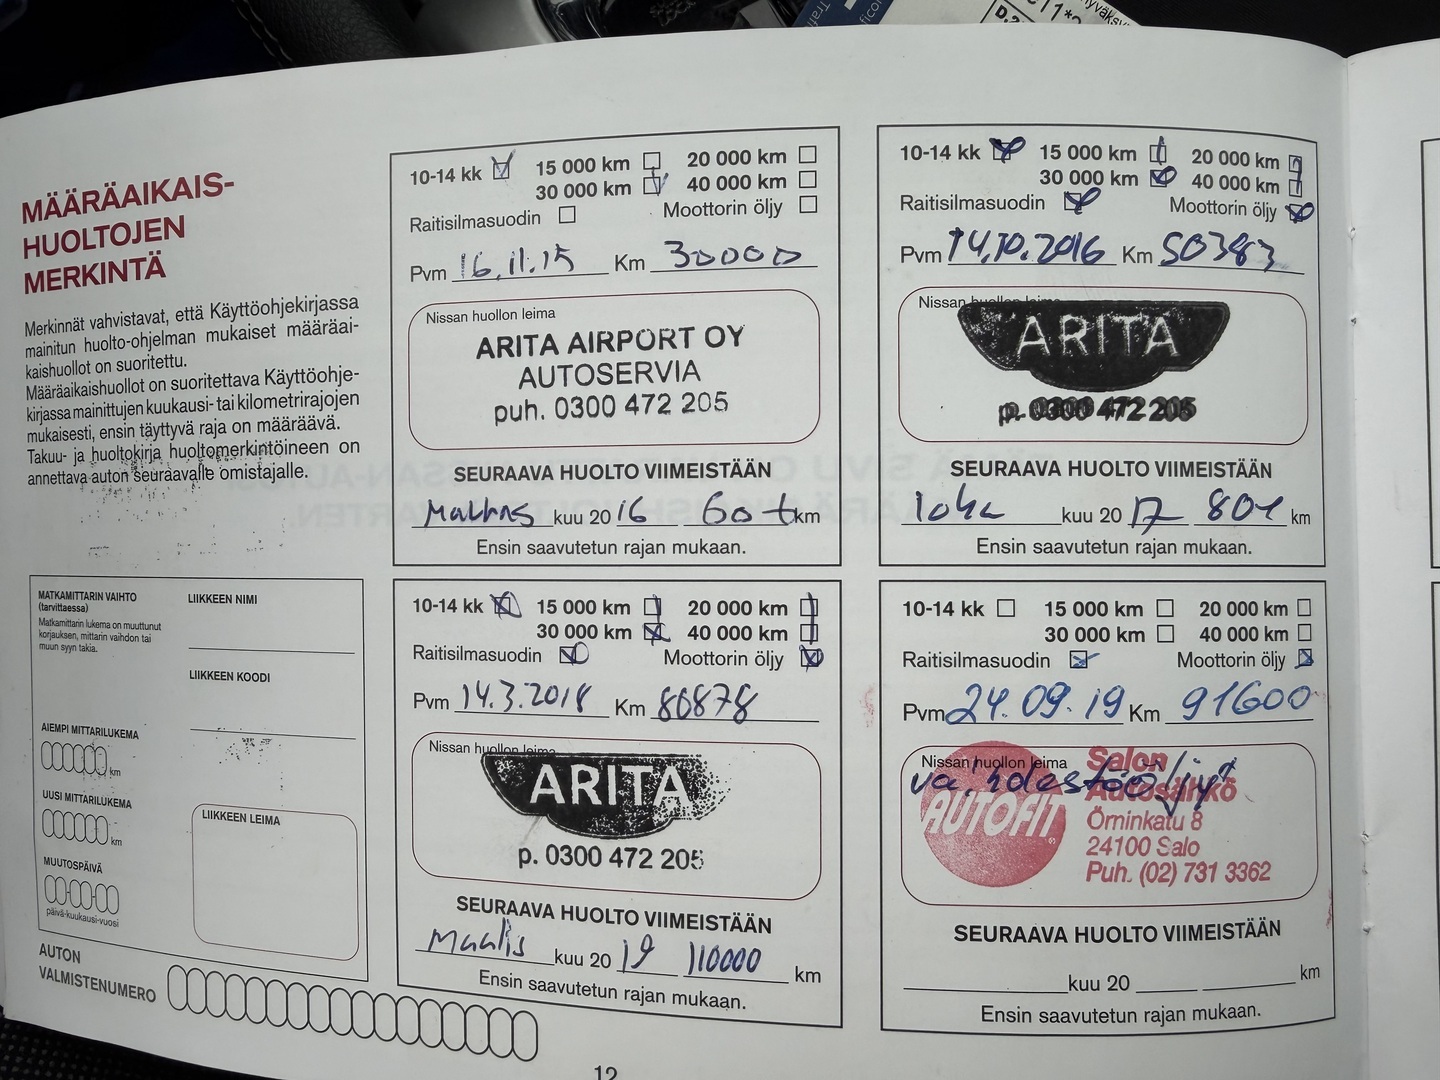 MÄÄRÄAIKAIS-
HUOLTOJEN
MERKINTÄ
Merkinnät vahvistavat, että Käyttöohjekirjassa
mainitun huolto-ohjelman mukaiset määräai-
kaishuollot on suoritettu.
Määräaikaishuollot on suoritettava Käyttöohje-
kirjassa mainittujen kuukausi- tai kilometrirajojen
mukaisesti, ensin täyttyvä raja on määräävä.
Takuu- ja huoltokirja huoltomerkintöineen on
annettava auton seuraavalle omistajalle.
MATKAMITTARIN VAIHTO
(tarvittaessa)
Matkamittarin lukema on muuttunut
korjauksen, mittarin vaihdon tai
muun syyn takia.
AIEMPI MITTARILUKEMA
km
UUSI MITTARILUKEMA
km
MUUTOSPÄIVÄ
päivä-kuukausi-vuosi
LIIKKEEN NIMI
LIIKKEEN KOODI
LIIKKEEN LEIMA
AUTON
VALMISTENUMERO
10-14 kk 15 000 km 20 000 km
30 000 km 40 000 km
Raitisilmasuodin Moottorin öljy
Pvm 16.11.15 Km 30000
Nissan huollon leima
ARITA AIRPORT OY
AUTOSERVIA
puh. 0300 472 205
SEURAAVA HUOLTO VIIMEISTÄÄN
kuu 2016 60 t km
Ensin saavutetun rajan mukaan.
10-14 kk 15 000 km 20 000 km
30 000 km 40 000 km
Raitisilmasuodin Moottorin öljy
Pvm 14.10.2016 Km 50383
Nissan huollon leima
ARITA
p. 0300 472 205
SEURAAVA HUOLTO VIIMEISTÄÄN
loka kuu 2017 80t km
Ensin saavutetun rajan mukaan.
10-14 kk 15 000 km 20 000 km
30 000 km 40 000 km
Raitisilmasuodin Moottorin öljy
Pvm 14.3.2018 Km 80878
Nissan huollon leima
ARITA
p. 0300 472 205
SEURAAVA HUOLTO VIIMEISTÄÄN
Maalis kuu 2019 110000 km
Ensin saavutetun rajan mukaan.
10-14 kk 15 000 km 20 000 km
30 000 km 40 000 km
Raitisilmasuodin Moottorin öljy
Pvm 24.09.19 Km 91600
Nissan huollon leima
vaihdestoöljyt
AUTOFIT
Salon
Autosähkö
Örninkatu 8
24100 Salo
Puh. (02) 731 3362
SEURAAVA HUOLTO VIIMEISTÄÄN
kuu 20 km
Ensin saavutetun rajan mukaan.
12